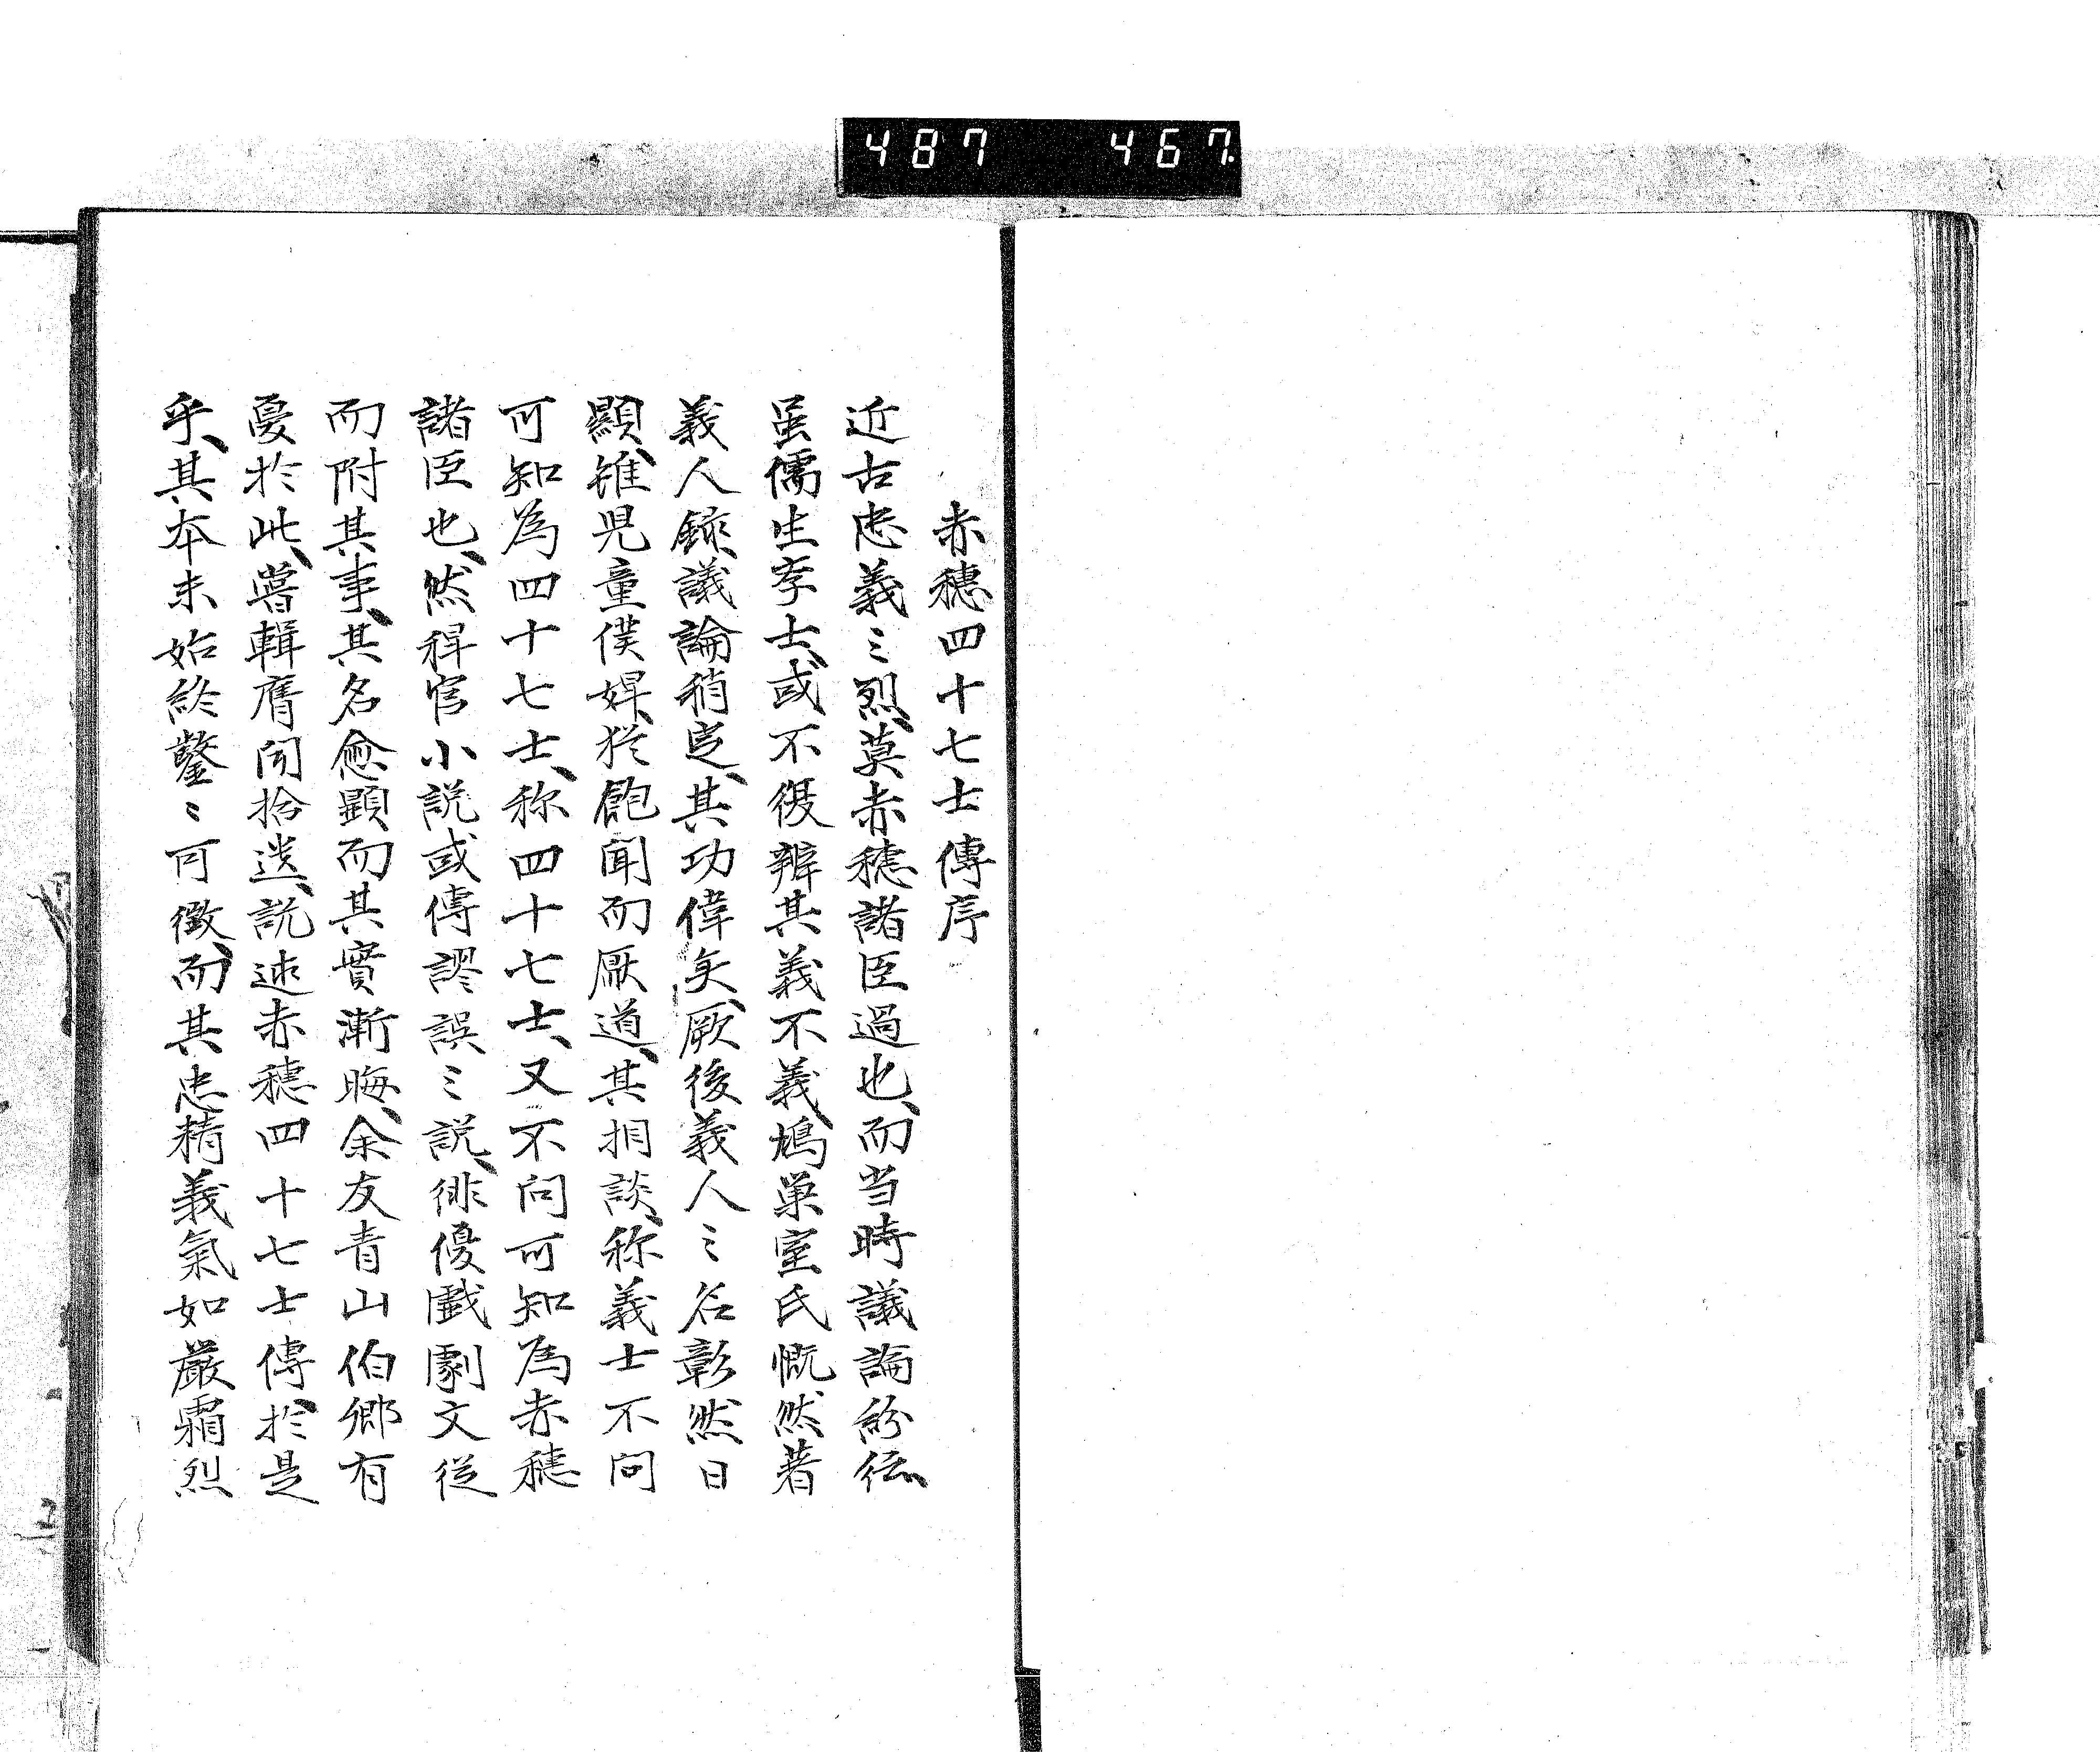 487 467.
赤穗四十七士傳序
近古忠義〻烈、莫赤穗諸臣過也、而当時議論紛纭、
虽儒生孛士、或不復辨其義不義、鳩巣室氏慨然著
義人録、議論稍定、其功偉矣、厥後義人〻名彰然日
顯、雖児童僕婢、猶飽聞而厭道、其相談、称義士不問
可知為四十七士、称四十七士、又不问可知為赤穗
諸臣也、然稗官小説或傳謬誤〻説、俳優戯劇文從
而附其事、其名愈顕而其實漸晦、余友青山伯卿有
憂於此、嘗輯旧聞拾遺、説述赤穗四十七士傳、於是
乎、其本末始終鑿〻可徴、而其忠精義氣如嚴霜烈